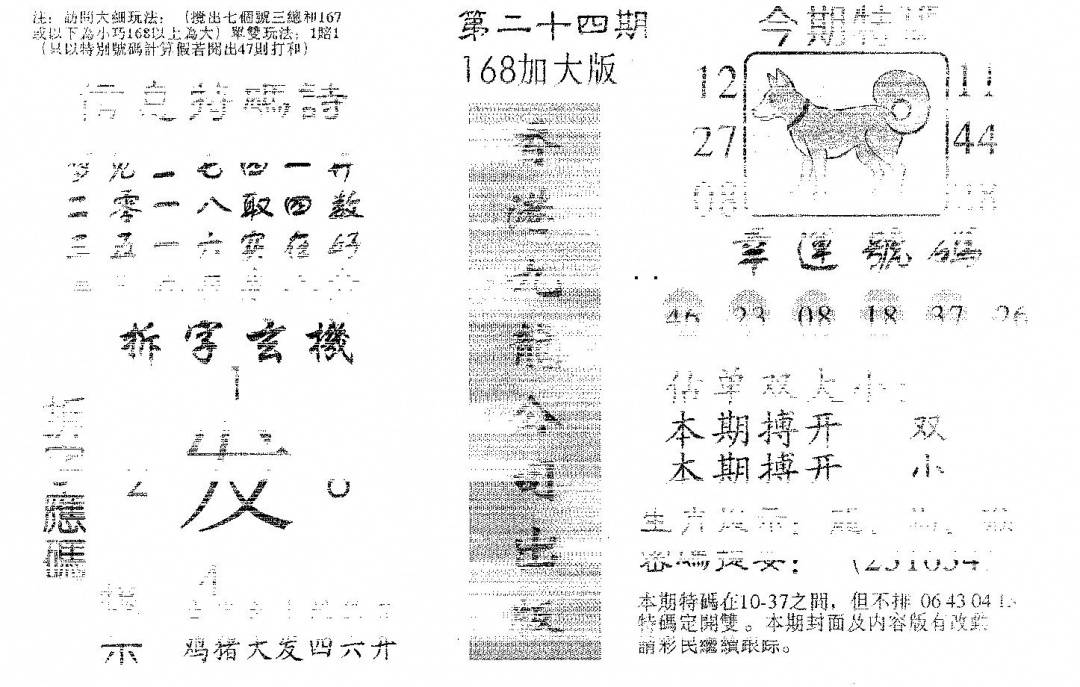 注：訪問大細玩法：（攪出七個號三總和167
或以下為小巧168以上為大）單雙玩法：1賠1
（只以特別號碼計算假若開出47則打和）
信息特碼詩
二零一八取四数
三五一六实在好
拆字玄機
1
发
2
0
4
拆字應碼
提示
鸡猪大发四六开
第二十四期
168加大版
香港九龍公司出版
今期特碼
12
11
27
44
08
38
幸運號碼
46 23 08 18 37 26
估单双大小：
本期搏开 双
本期搏开 小
本期特碼在10-37之間，但不排 06 43 04
特碼定開雙。本期封面及内容版有改動
請彩民繼續跟踪。